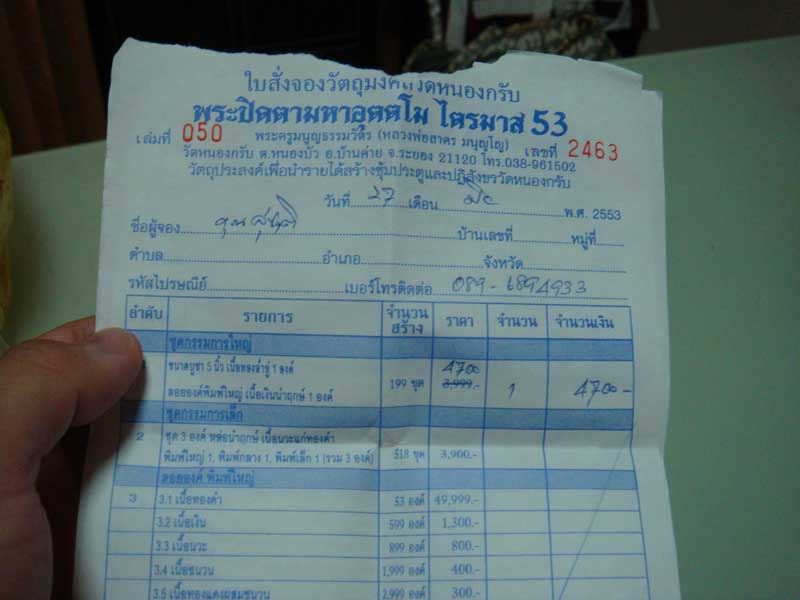 ใบสั่งจองวัตถุมงคลวัดหนองกรับ
พระปิดตามหาอุตตโม ไตรมาส 53
เล่มที่ 050 พระครูมนูญธรรมวัตร (หลวงพ่อสาคร มนุญโญ) เลขที่ 2463
วัดหนองกรับ ต.หนองบัว อ.บ้านค่าย จ.ระยอง 21120 โทร.038-961502
วัตถุประสงค์เพื่อนำรายได้สร้างซุ้มประตูและปฏิสังขรวัดหนองกรับ
วันที่ 27 เดือน มิย พ.ศ. 2553
ชื่อผู้จอง คุณ บ้านเลขที่ หมู่ที่
ตำบล อำเภอ จังหวัด
รหัสไปรษณีย์ เบอร์โทรติดต่อ 089-6894933
ลำดับ รายการ จำนวนสร้าง ราคา จำนวน จำนวนเงิน
ชุดกรรมการใหญ่
ขนาดบูชา 5 นิ้ว เนื้อทองลำอู่ 1 องค์ 4700
ลอยองค์พิมพ์ใหญ่ เนื้อเงินนำฤกษ์ 1 องค์ 199 ชุด 3,999.- 1 4700-
ชุดกรรมการเล็ก
2 ชุด 3 องค์ หล่อนำฤกษ์ เนื้อนวะแก่ทองคำ
พิมพ์ใหญ่ 1, พิมพ์กลาง 1, พิมพ์เล็ก 1 (รวม 3 องค์) 518 ชุด 3,900.-
ลอยองค์ พิมพ์ใหญ่
3 3.1 เนื้อทองคำ 53 องค์ 49,999.-
3.2 เนื้อเงิน 599 องค์ 1,300.-
3.3 เนื้อนวะ 899 องค์ 800.-
3.4 เนื้อชนวน 1,999 องค์ 400.-
3.5 เนื้อทองแดงผสมชนวน 2,999 องค์ 300.-